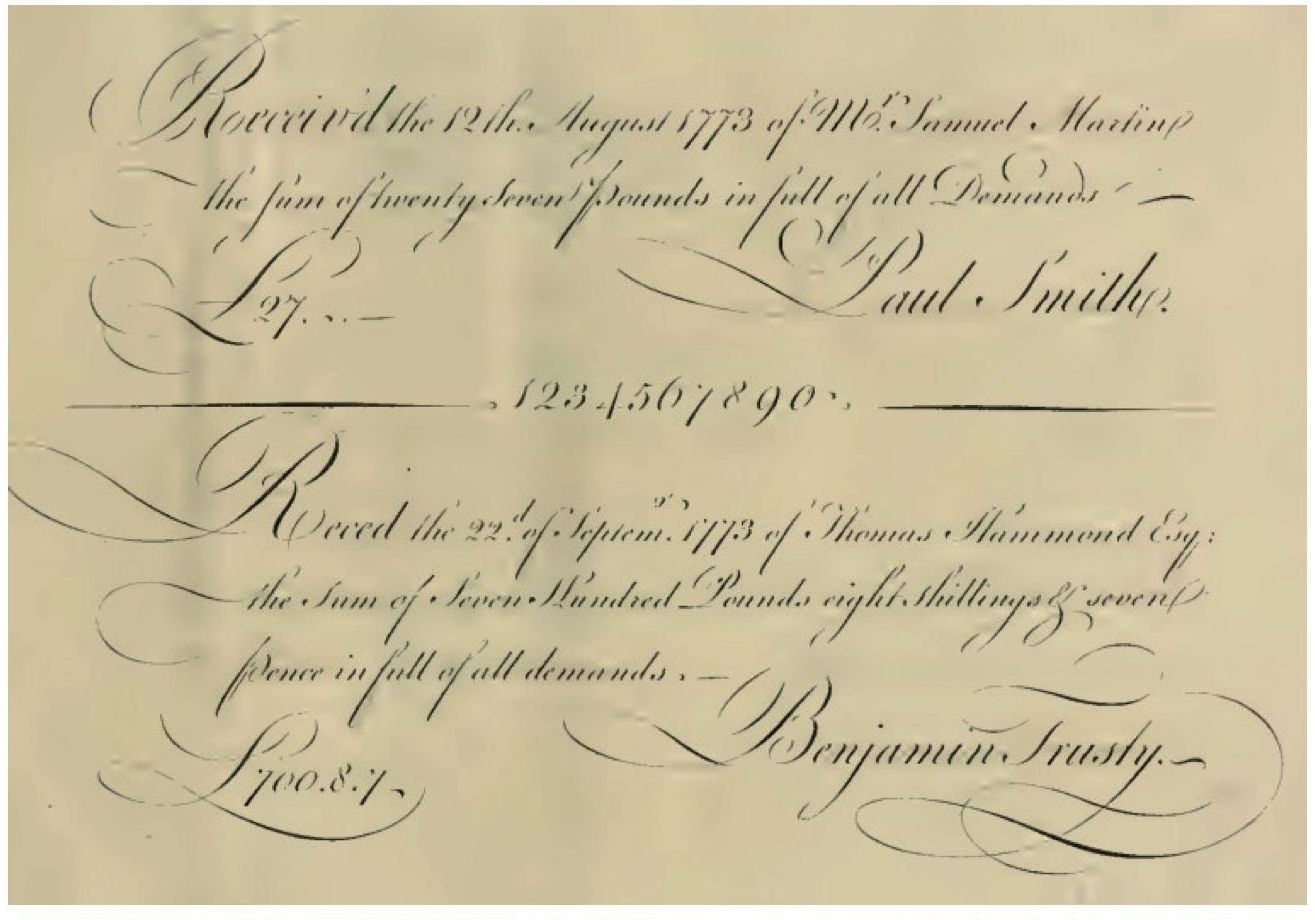 Received the 12th. August 1773 of Mr. Samuel Martin
the sum of twenty Seven Pounds in full of all Demands —
£27. .. —
Paul Smith.
1234567890
Reced the 22d. of Septemr. 1773 of Thomas Hammond Esq:
the Sum of Seven Hundred Pounds eight Shillings & seven
pence in full of all demands. —
£700.8.7
Benjamin Trusty.